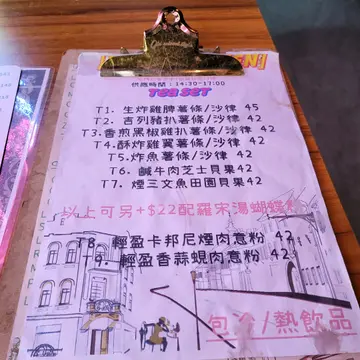 供應時間：14:30-17:00
TEA SET
T1. 生炸雞脾薯條/沙律 45
T2. 吉列豬扒薯條/沙律 42
T3. 香煎黑椒雞扒薯條/沙律 42
T4. 酥炸雞翼薯條/沙律 42
T5. 炸魚薯條/沙律 42
T6. 鹹牛肉芝士貝果 42
T7. 煙三文魚田園貝果 42
以上可另+$22配羅宋湯蝴蝶!
T8. 輕盈卡邦尼煙肉意粉 42
T9. 輕盈香蒜蜆肉意粉 42
/熱飲品